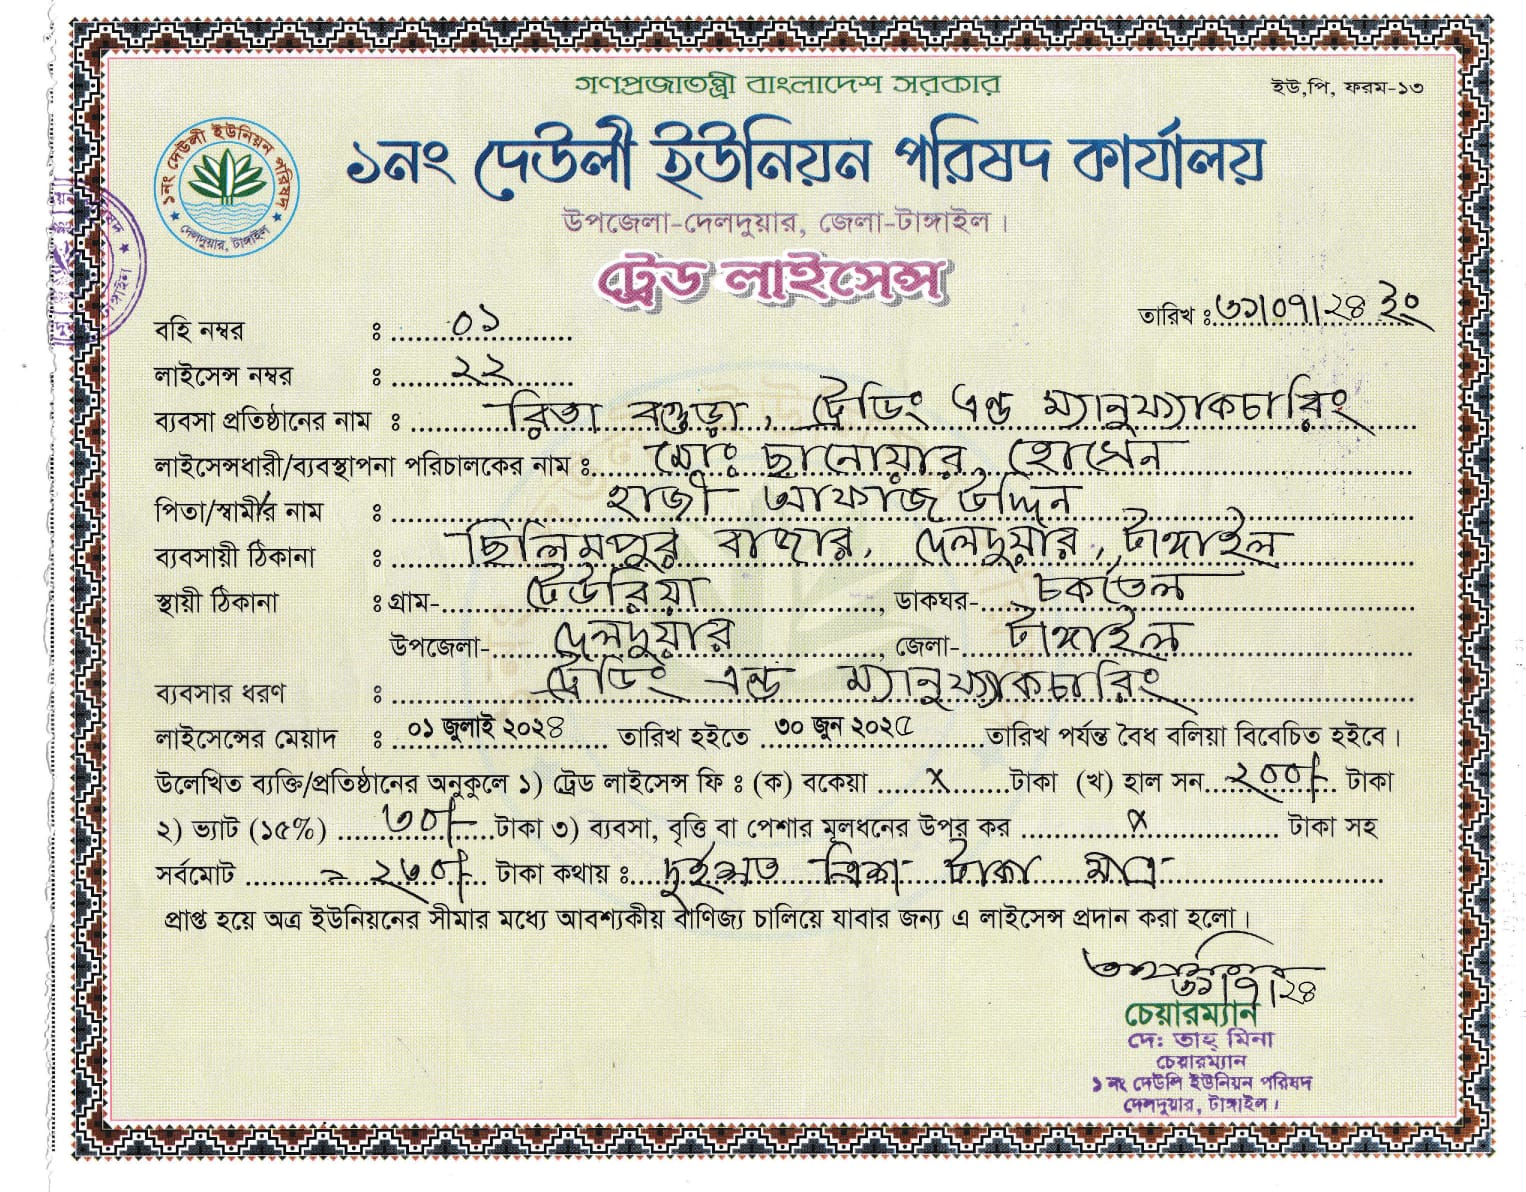 গণপ্রজাতন্ত্রী বাংলাদেশ সরকার
ইউ,পি, ফরম-১৩
১নং দেউলী ইউনিয়ন পরিষদ কার্যালয়
১নং দেউলী ইউনিয়ন পরিষদ
দেলদুয়ার, টাঙ্গাইল
উপজেলা-দেলদুয়ার, জেলা-টাঙ্গাইল।
ট্রেড লাইসেন্স
তারিখ ঃ ৩১/০৭/২৪ ইং
বহি নম্বর ঃ ০১
লাইসেন্স নম্বর ঃ ২২
ব্যবসা প্রতিষ্ঠানের নাম ঃ রিতা বগুড়া, ট্রেডিং এন্ড ম্যানুফ্যাকচারিং
লাইসেন্সধারী/ব্যবস্থাপনা পরিচালকের নাম ঃ মোঃ ছানোয়ার হোসেন
পিতা/স্বামীর নাম ঃ হাজী আফাজ উদ্দিন
ব্যবসায়ী ঠিকানা ঃ ছিলিমপুর বাজার, দেলদুয়ার, টাঙ্গাইল
স্থায়ী ঠিকানা ঃ গ্রাম- টেউরিয়া, ডাকঘর- চকতৈল
উপজেলা- দেলদুয়ার, জেলা- টাঙ্গাইল
ব্যবসার ধরণ ঃ ট্রেডিং এন্ড ম্যানুফ্যাকচারিং
লাইসেন্সের মেয়াদ ঃ ০১ জুলাই ২০২৪ তারিখ হইতে ৩০ জুন ২০২৫ তারিখ পর্যন্ত বৈধ বলিয়া বিবেচিত হইবে।
উলেখিত ব্যক্তি/প্রতিষ্ঠানের অনুকুলে ১) ট্রেড লাইসেন্স ফি ঃ (ক) বকেয়া x টাকা (খ) হাল সন ২০০/- টাকা
২) ভ্যাট (১৫%) ৩০/- টাকা ৩) ব্যবসা, বৃত্তি বা পেশার মূলধনের উপর কর x টাকা সহ
সর্বমোট = ২৩০/- টাকা কথায় ঃ দুইশত ত্রিশ টাকা মাত্র
প্রাপ্ত হয়ে অত্র ইউনিয়নের সীমার মধ্যে আবশ্যকীয় বাণিজ্য চালিয়ে যাবার জন্য এ লাইসেন্স প্রদান করা হলো।
৩১/৭/২৪
চেয়ারম্যান
দে: তাহ্ মিনা
চেয়ারম্যান
১ নং দেউলি ইউনিয়ন পরিষদ
দেলদুয়ার, টাঙ্গাইল।